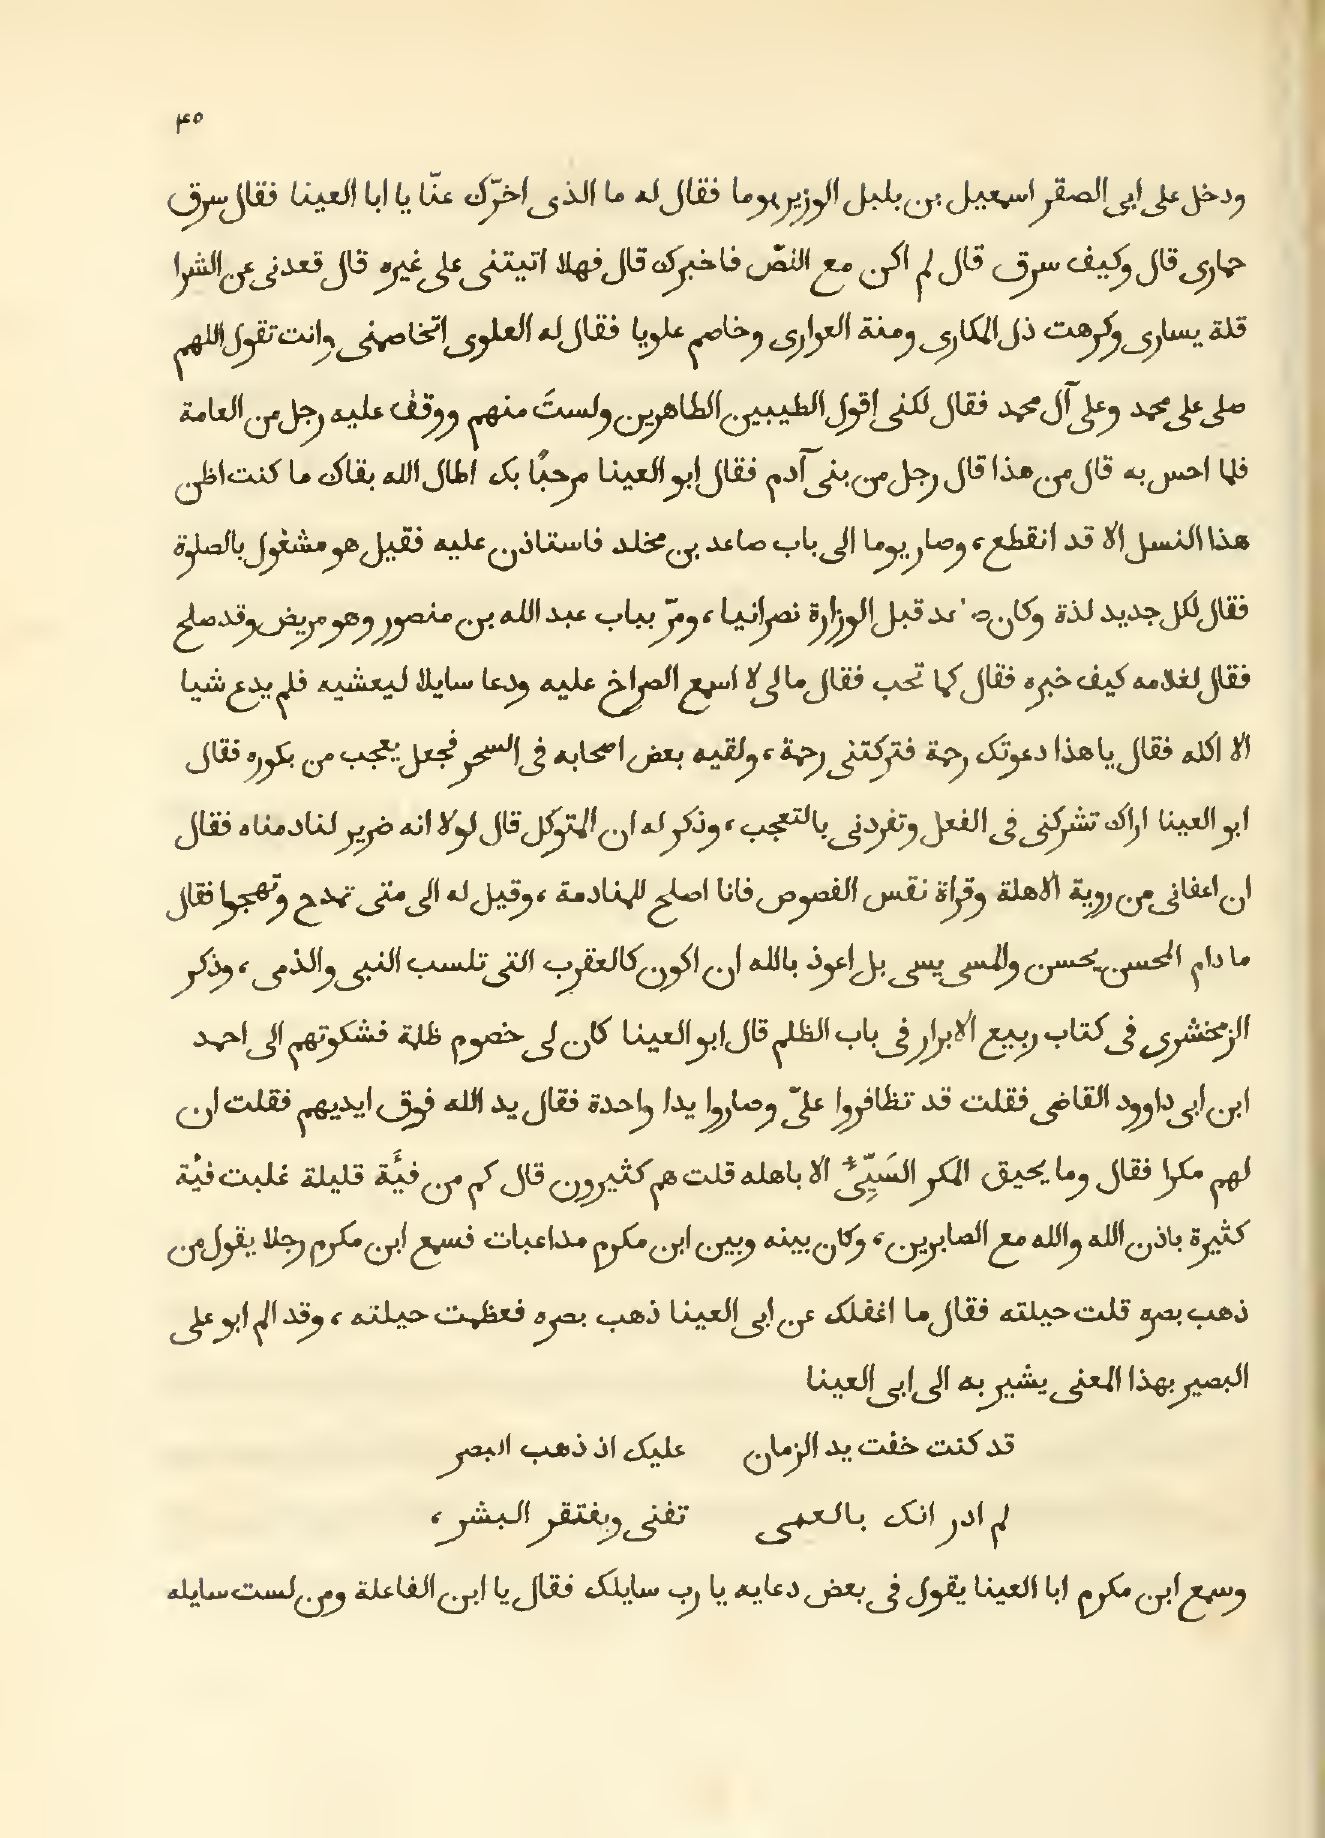 ٤٥
ودخل على ابى الصقر اسمعيل بن بلبل الوزير يوما فقال له ما الذى اخّرك عنّا يا ابا العينا فقال سرق
حمارى قال وكيف سرق قال لم اكن مع اللصّ فاخبرك قال فهلا اتيتنى على غيره قال قعدنى عن الشرا
قلة يسارى وكرهت ذل المكارى ومنة العوارى وخاصم علويا فقال له العلوى اتخاصمنى وانت تقول اللهم
صلى على محمد وعلى آل محمد فقال لكنى اقول الطيبين الطاهرين ولستَ منهم ووقف عليه رجل من العامة
فلما احس به قال من هذا قال رجل من بنى آدم فقال ابو العينا مرحبًا بك اطال الله بقاك ما كنت اظن
هذا النسل الا قد انقطع، وصار يوما الى باب صاعد بن مخلد فاستاذن عليه فقيل هو مشغول بالصلوة
فقال لكل جديد لذة وكان صاعد قبل الوزارة نصرانيا، ومرّ بباب عبد الله بن منصور وهو مريض وقد صلح
فقال لغلامه كيف خبره فقال كما تحب فقال مالى لا اسمع الصراخ عليه ودعا سايلا ليعشيه فلم يدع شيا
الا اكله فقال يا هذا دعوتك رحمة فتركتنى رحمة، ولقيه بعض اصحابه فى السحر فجعل يعجب من بكوره فقال
ابو العينا اراك تشركنى فى الفعل وتفردنى بالتعجب، وذكر له ان المتوكل قال لولا انه ضرير لنادمناه فقال
ان اعفانى من روية الاهلة وقراة نقس الفصوص فانا اصلح للمنادمة، وقيل له الى متى تمدح وتهجوا فقال
ما دام المحسن يحسن والمسى يسى بل اعوذ بالله ان اكون كالعقرب التى تلسب النبى والذمى، وذكر
الزمخشرى فى كتاب ربيع الابرار فى باب الظلم قال ابو العينا كان لى خصوم ظلمة فشكوتهم الى احمد
ابن ابى داوود القاضى فقلت قد تظافروا علىّ وصاروا يدا واحدة فقال يد الله فوق ايديهم فقلت ان
لهم مكرا فقال وما يحيق المكر السَيِّىُٔ الا باهله قلت هم كثيرون قال كم من فئَة قليلة غلبت فئُة
كثيرة باذن الله والله مع الصابرين، وكان بينه وبين ابن مكرم مداعبات فسمع ابن مكرم رجلا يقول من
ذهب بصره قلت حيلته فقال ما اغفلك عن ابى العينا ذهب بصره فعظمت حيلته، وقد الم ابو على
البصير بهذا المعنى يشير به الى ابى العينا
قد كنت خفت يد الزمان عليك اذ ذهب البصر
لم ادر انك بالعمى تفنى ويفتقر البشر،
وسمع ابن مكرم ابا العينا يقول فى بعض دعايه يا رب سايلك فقال يا ابن الفاعلة ومن لست سايله